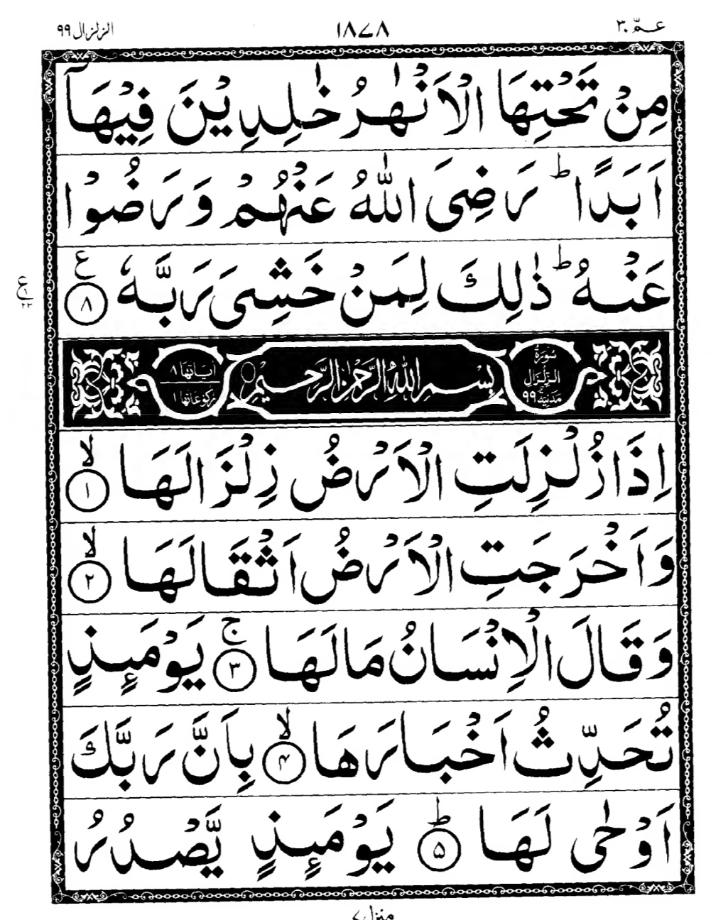 عمّ ٣٠ ١٨٧٨ الزلزال ٩٩
مِنْ تَحْتِهَا الْاَنْهٰرُ خٰلِدِيْنَ فِيْهَاۤ
اَبَدًا ؕ رَضِىَ اللّٰهُ عَنْهُمْ وَرَضُوْا
عَنْهُ ؕ ذٰلِكَ لِمَنْ خَشِىَ رَبَّهٗ ﴿٨﴾ ع
سُوْرَةُ الزِّلْزَالِ مَدَنِيَّةٌ ٩٩ بِسْمِ اللّٰهِ الرَّحْمٰنِ الرَّحِيْمِ اٰيَاتُهَا ٨ رُكُوْعَاتُهَا ١
اِذَا زُلْزِلَتِ الْاَرْضُ زِلْزَالَهَا ﴿١﴾ ۙ
وَاَخْرَجَتِ الْاَرْضُ اَثْقَالَهَا ﴿٢﴾ ۙ
وَقَالَ الْاِنْسَانُ مَا لَهَا ﴿٣﴾ ۚ يَوْمَئِذٍ
تُحَدِّثُ اَخْبَارَهَا ﴿٤﴾ ۙ بِاَنَّ رَبَّكَ
اَوْحٰى لَهَا ﴿٥﴾ ؕ يَوْمَئِذٍ يَّصْدُرُ
منزل ٧